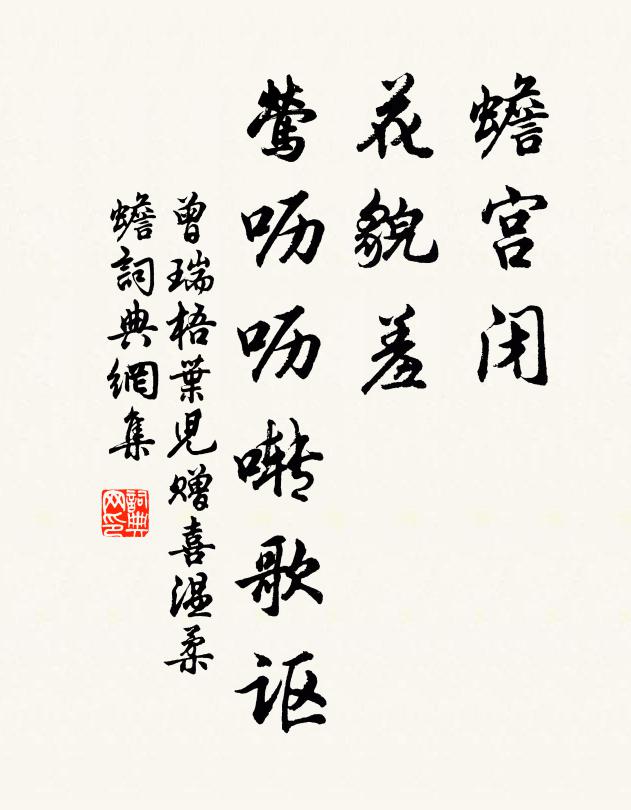 蟾宫闭
花貌羞
莺呖呖啭歌讴
曾瑞梧葉児赠喜温柔
蟾詞典網集
詞典网印